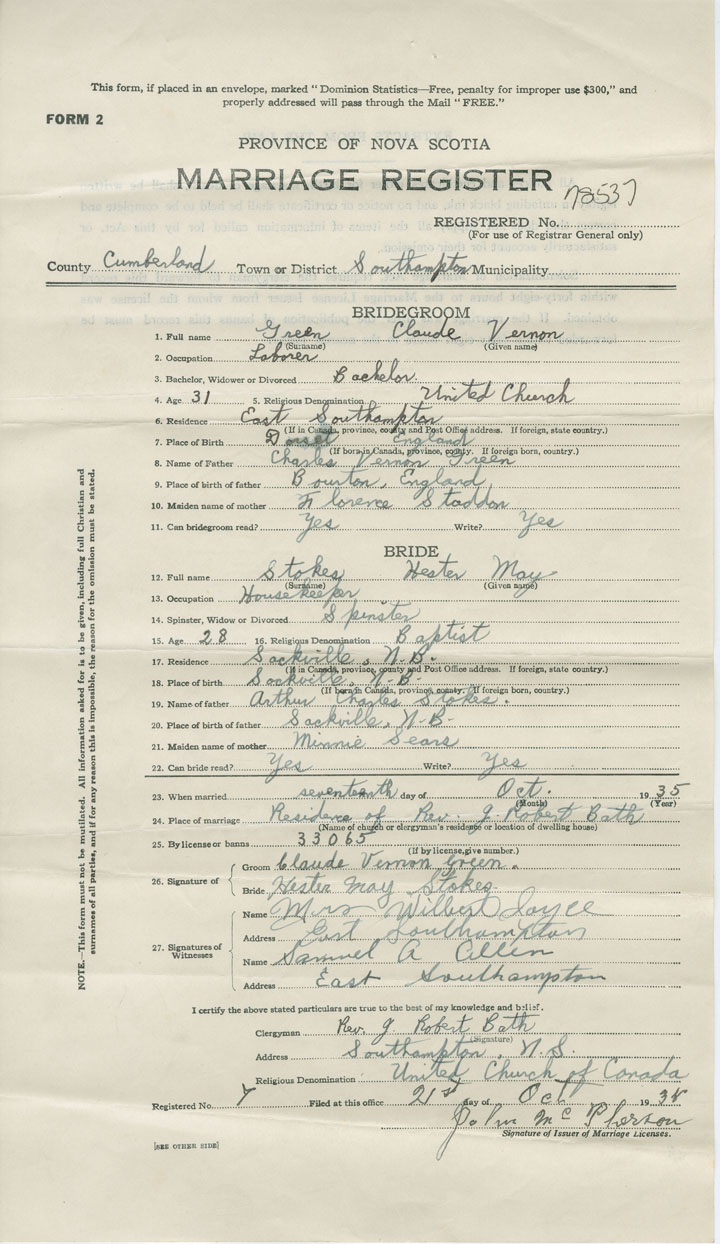 This form, if placed in an envelope, marked "Dominion Statistics—Free, penalty for improper use $300," and
properly addressed will pass through the Mail "FREE."
FORM 2
PROVINCE OF NOVA SCOTIA
MARRIAGE REGISTER
78537
REGISTERED No.
(For use of Registrar General only)
County Cumberland Town or District Southampton Municipality
BRIDEGROOM
1. Full name Green Claude Vernon
(Surname) (Given name)
2. Occupation Laborer
3. Bachelor, Widower or Divorced Bachelor
4. Age 31 5. Religious Denomination United Church
6. Residence East Southampton
(If in Canada, province, county and Post Office address. If foreign, state country.)
7. Place of Birth Dorset England
(If born in Canada, province, county. If foreign born, country.)
8. Name of Father Charles Vernon Green
9. Place of birth of father Bourton, England
10. Maiden name of mother Florence Staddon
11. Can bridegroom read? Yes Write? Yes
BRIDE
12. Full name Stokes Hester May
(Surname) (Given name)
13. Occupation Housekeeper
14. Spinster, Widow or Divorced Spinster
15. Age 28 16. Religious Denomination Baptist
17. Residence Sackville, N.B.
(If in Canada, province, county and Post Office address. If foreign, state country.)
18. Place of birth Sackville, N-B-
(If born in Canada, province, county. If foreign born, country.)
19. Name of father Arthur Charles Stokes.
20. Place of birth of father Sackville, N-B-
21. Maiden name of mother Minnie Sears
22. Can bride read? Yes Write? Yes
23. When married seventeenth day of Oct. 1935
(Month) (Year)
24. Place of marriage Residence of Rev. J. Robert Bath
(Name of church or clergyman's residence or location of dwelling house)
25. By license or banns 33065
(If by license, give number.)
26. Signature of
Groom Claude Vernon Green.
Bride Hester May Stokes
27. Signatures of Witnesses
Name Mrs Wilbert Joyce
Address East Southampton
Name Samuel A Allen
Address East Southampton
I certify the above stated particulars are true to the best of my knowledge and belief.
Clergyman Rev. J. Robert Bath
(Signature)
Address Southampton, N.S.
Religious Denomination United Church of Canada
Registered No. 7 Filed at this office 21st day of Oct 1935
John McPherson
Signature of Issuer of Marriage Licenses.
[SEE OTHER SIDE]
NOTE.—This form must not be mutilated. All information asked for is to be given, including full Christian and
surnames of all parties, and if for any reason this is impossible, the reason for the omission must be stated.